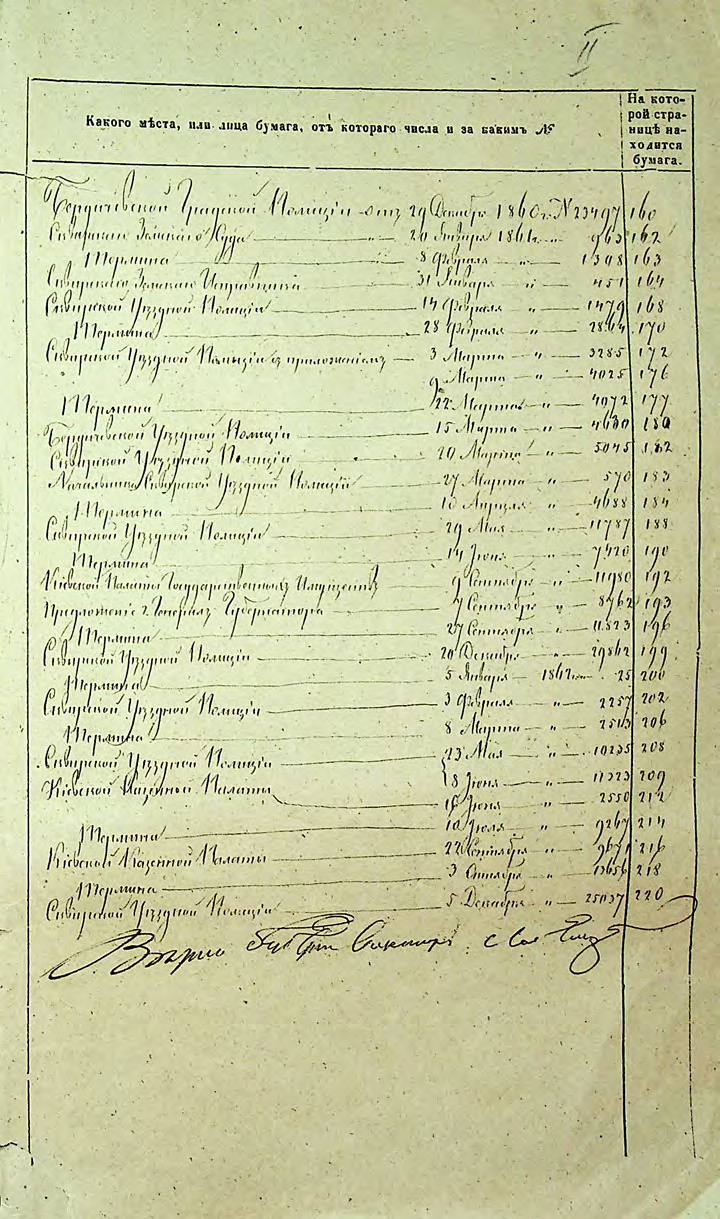 II
Какого мѣста, или лица бумага, отъ котораго числа и за какимъ №
На кото-
рой стра-
ницѣ на-
ходится
бумага.
Бердичевской Градской Полиціи отъ 29 Декабря 1860 г. N 23497 160
Сквирскаго Земскаго Суда 20 Января 1861 г. " 963 162
Термина 8 Февраля " 1308 163
Сквирскаго Земскаго Исправника 31 Января " 451 164
Сквирской Уѣздной Полиціи 14 Февраля " 1479 168
Термина 28 Февраля " 2864 170
Сквирской Уѣздной Полиціи съ приложеніемъ 3 Марта " 3285 172
9 Марта " 4025 176
Термина 22 Марта " 4072 177
Бердичевской Уѣздной Полиціи 15 Марта " 4630 180
Сквирской Уѣздной Полиціи 20 Марта " 5045 182
Начальника Сквирской Уѣздной Полиціи 27 Марта " 570 183
Термина 10 Апрѣля " 4688 184
Сквирской Уѣздной Полиціи 29 Мая " 11787 188
Термина 14 Іюня " 7420 190
Кіевской Палаты Государственныхъ Имуществъ 9 Сентября " 11980 192
Предложеніе г. Генералъ Губернатора 7 Сентября " 8762 193
Термина 27 Сентября " 11823 196
Сквирской Уѣздной Полиціи 20 Декабря " 29862 199
Термина 5 Января 1862 г. " 25 200
Сквирской Уѣздной Полиціи 3 Февраля " 2257 202
Термина 8 Марта " 2513 206
Сквирской Уѣздной Полиціи 23 Мая " 10235 208
Кіевской Казенной Палаты 18 Іюня " 11323 209
16 Іюня " 2550 212
Термина 10 Іюля " 9267 214
Кіевской Казенной Палаты 22 Сентября " 9671 216
Термина 3 Октября " 13656 218
Сквирской Уѣздной Полиціи 5 Декабря " 25037 220
Вѣрно